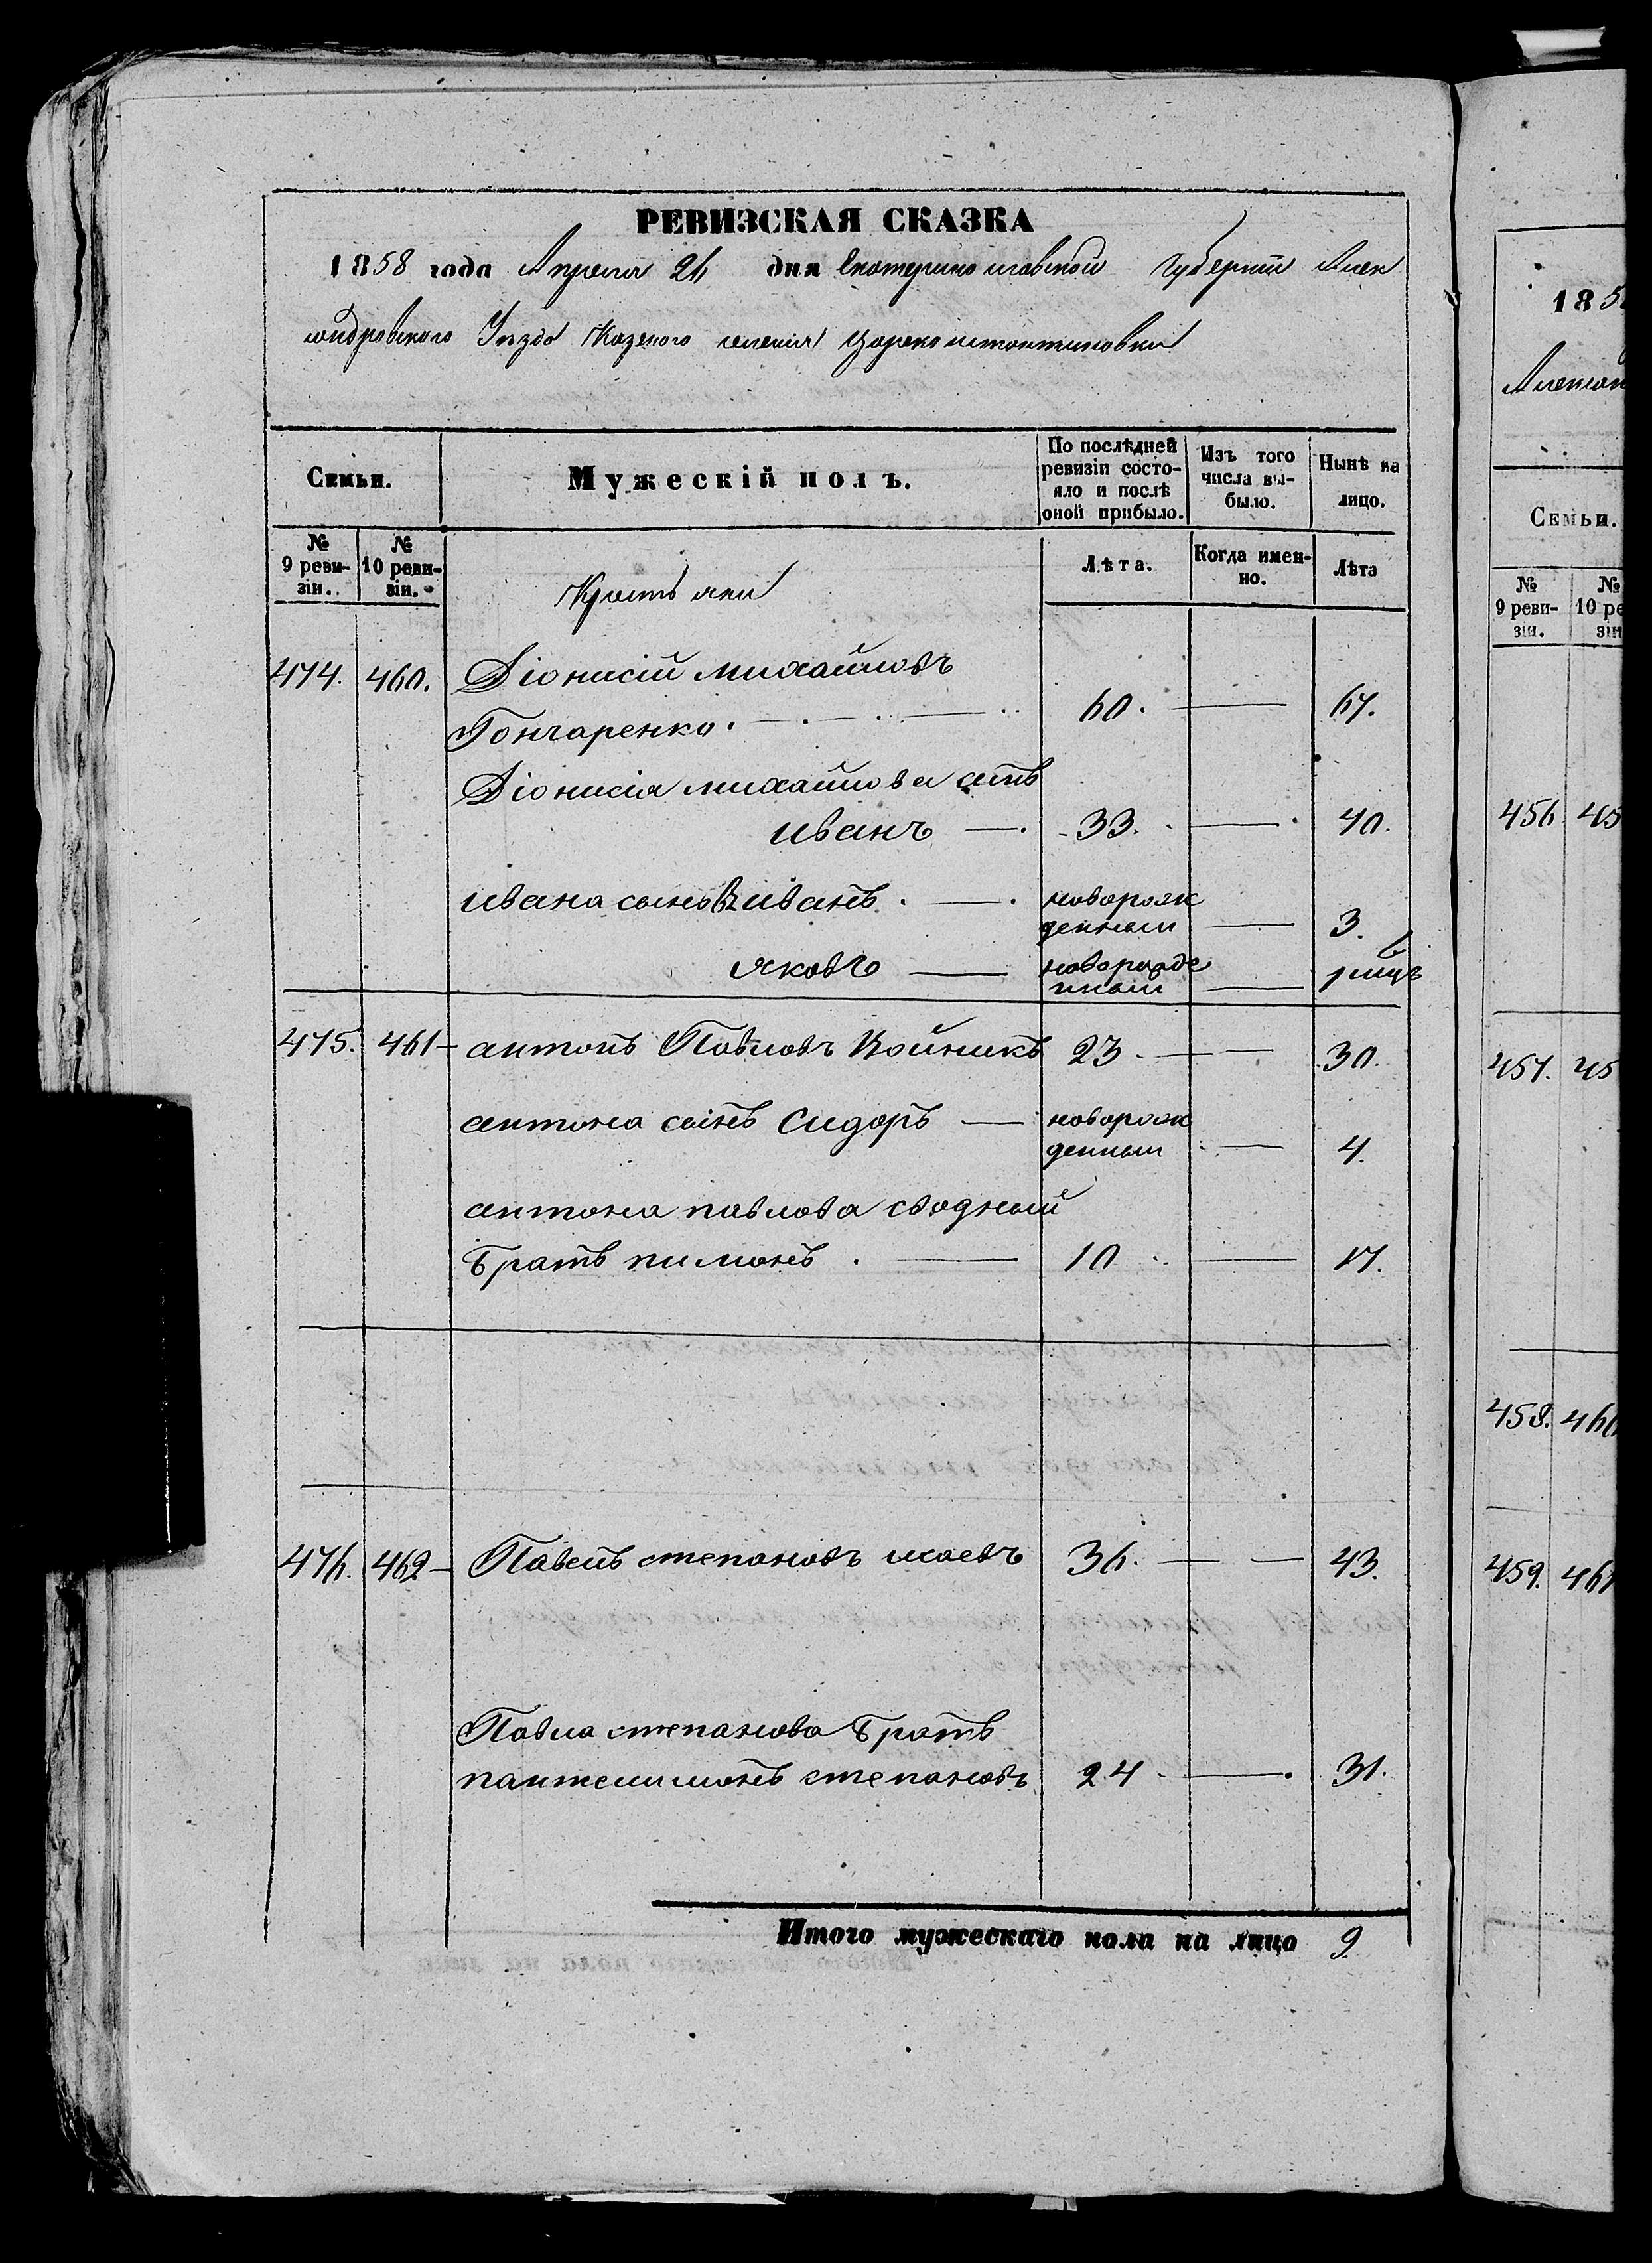 РЕВИЗСКАЯ СКАЗКА
1858 года Апреля 26 дня Екатеринославской Губернии Алек
сандровского Уезда Казеного селения Цареконстантиновки
Семьи.
Мужескій полъ.
По послѣдней ревизіи состо-
яло и послѣ оной прибыло.
Изъ того числа вы-
было.
Нынѣ на лицо.
№ 9 реви-
зіи.
№ 10 реви-
зіи.
Лѣта.
Когда имен-
но.
Лѣта
Крестьяни
474. 460. Діонисій михайловъ
Гончаренко. 60. 67.
Діонисія михайлова сынъ
иванъ 33. 40.
ивана сыновья 1 иванъ. новорож
денный 3.
2 яковъ новорожде
нный 6 мцъ
475. 461 антонъ Павловъ Койникъ 23 30.
антона сынъ Сидоръ новорож
денный 4.
антона павлова сводный
братъ пимонъ. 10 17.
476. 462 Павелъ степановъ исаевъ 36. 43.
Павла степанова братъ
пантелимонъ степановъ 24 31.
Итого мужескаго пола на лицо 9
185
Алексан
Семьи.
№ 9 реви-
зіи.
№ 10 ре
зіи
456 45
457. 45
458. 460
459. 461